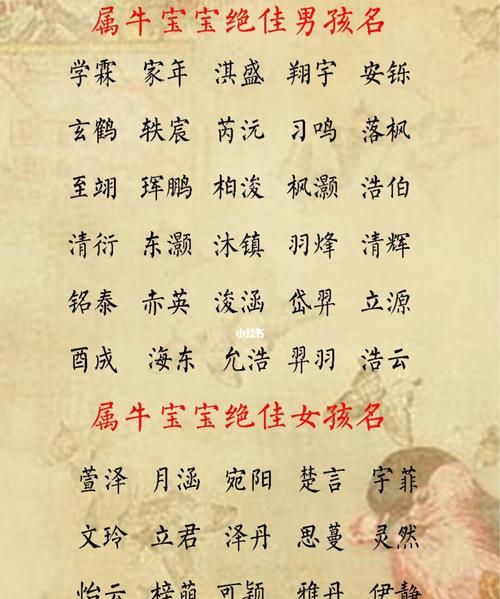 属牛宝宝绝佳男孩名
学霖 家年 淇盛 翔宇 安铄
玄鹤 轶宸 芮沅 习鸣 落枫
至翊 珲鹏 柏浚 枫灏 浩伯
清衍 东灏 沐镇 羽烽 清辉
铭泰 赤英 浚涵 岱羿 立源
小红书
酉成 海东 允浩 羿羽 浩云
属牛宝宝绝佳女孩名
萱泽 月涵 宛阳 楚言 宇菲
文玲 立君 泽丹 思蔓 灵然
怡云 梓萌 可颖 雅丹 伊静